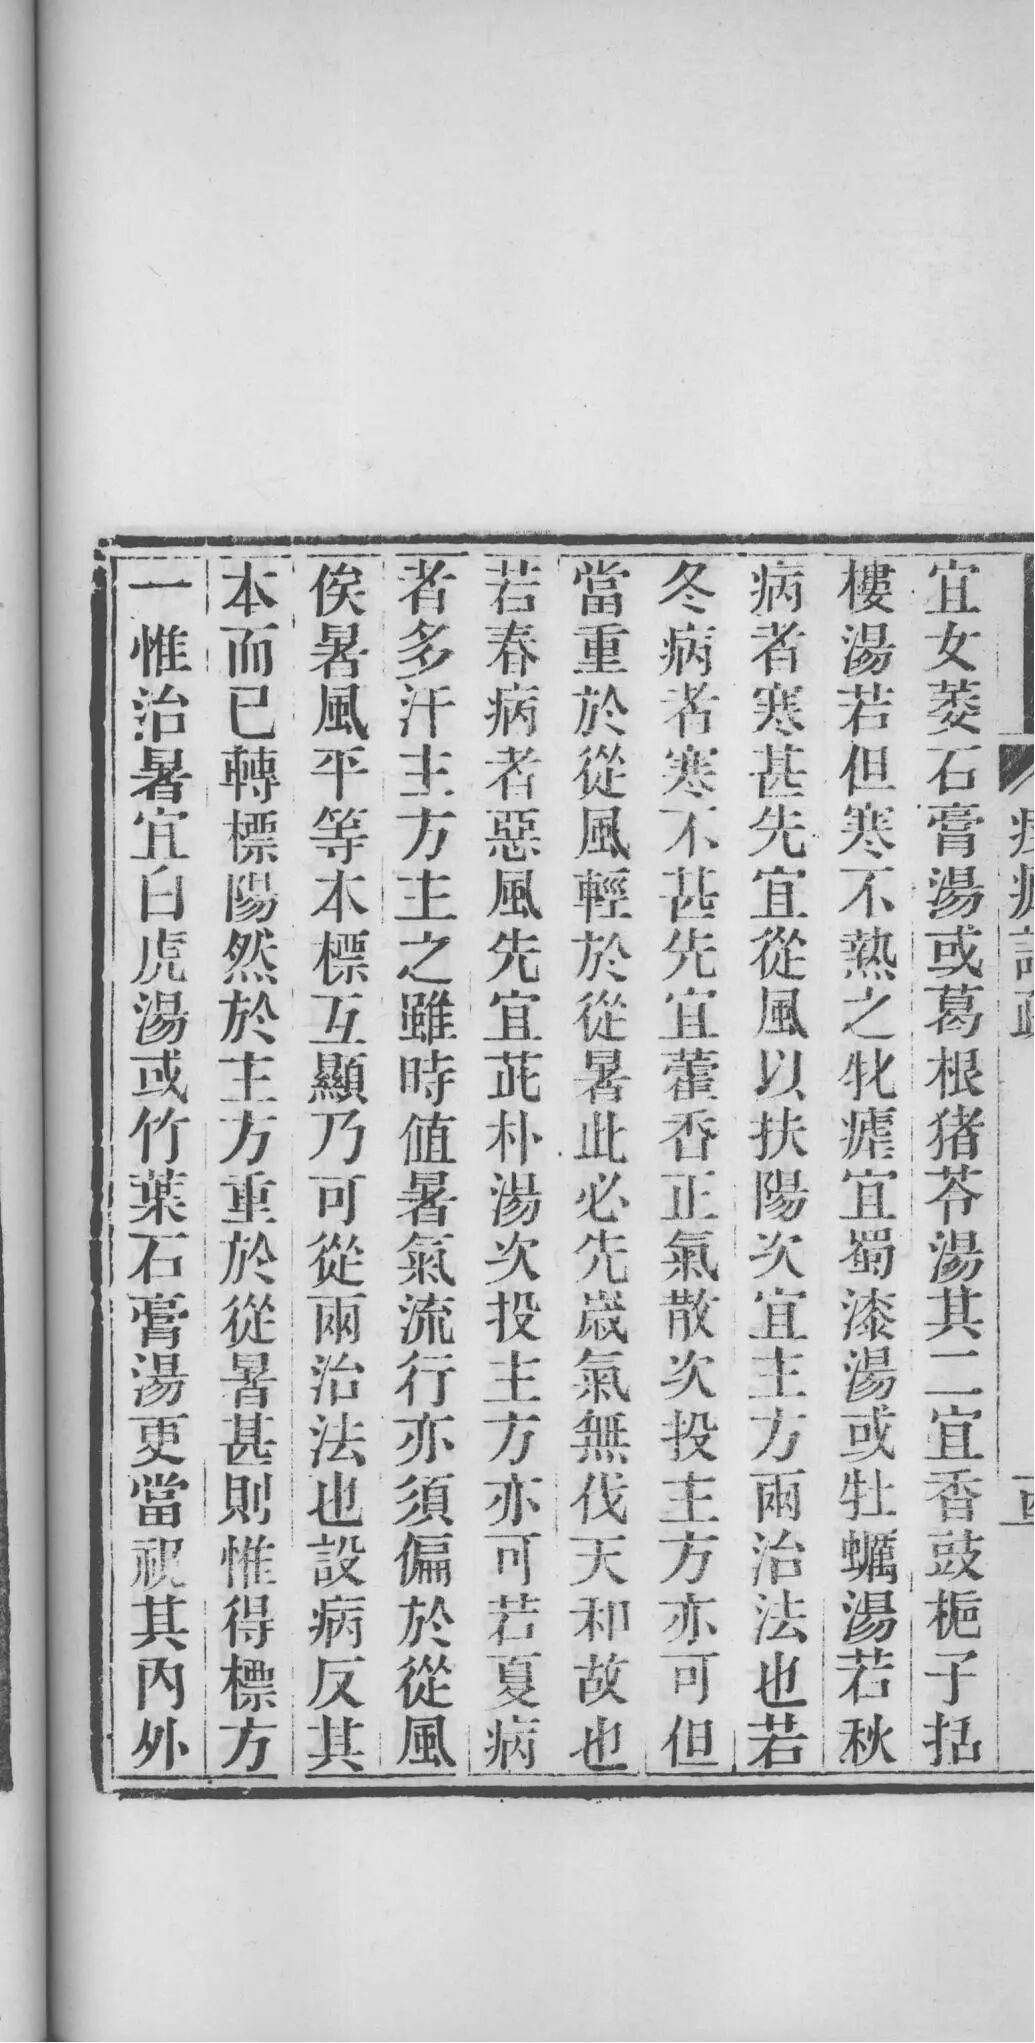 宜女萎石膏湯或葛根猪苓湯其二宜香豉梔子括
樓湯若但寒不熱之牝瘧宜蜀漆湯或牡蠣湯若秋
病者寒甚先宜從風以扶陽次宜主方兩治法也若
冬病者寒不甚先宜藿香正氣散次投主方亦可但
當重於從風輕於從暑此必先歲氣無伐天和故也
若春病者惡風先宜茈朴湯次投主方亦可若夏病
者多汗主方主之雖時値暑氣流行亦須偏於從風
俟暑風平等本標互顯乃可從兩治法也設病反其
本而已轉標陽然於主方重於從暑甚則惟得標方
一惟治暑宜白虎湯或竹葉石膏湯更當視其內外